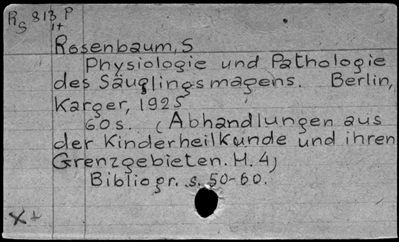 RS 813 P
1t
Rosenbaum, S
Physiologie und Pathologie
des Säuglingsmagens. Berlin,
Karger, 1925
60s. (Abhandlungen aus
der Kinderheilkunde und ihren
Grenzgebieten. H. 4)
Bibliogr. s. 50-60.